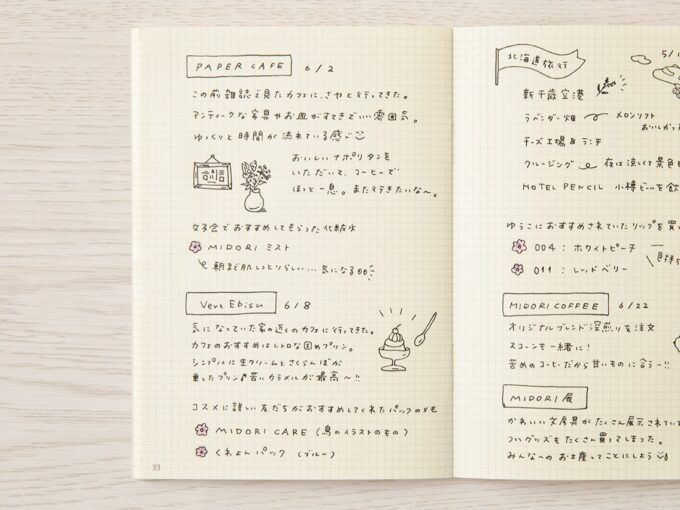 PAPER CAFE 6/2
この前雑誌で見たカフェに、さやと行ってきた。
アンティークな家具やお皿がすてきでいい雰囲気。
ゆっくりと時間が流れている感じ
おいしいナポリタンを
いただいて、コーヒーで
ほっと一息。また行きたいな〜。
女子会でおすすめしてもらった化粧水
MIDORI ミスト
朝まで肌しっとりらしい…気になる
Vert Ebisu 6/8
気になっていた家の近くのカフェに行ってきた。
カフェのおすすめはレトロな固めプリン。
シンプルに生クリームとさくらんぼが
乗ったプリン♪苦いカラメルが最高〜!!
コスメに詳しい友だちがおすすめしてくれたパックのメモ
MIDORI CARE (鳥のイラストのもの)
くれよんパック (ブルー)
33
北海道旅行 5/1
新千歳空港
ラベンダー畑 メロンソフト
おいしかっ
チーズ工場&ランチ
クルージング 夜は涼しくて景色も
HOTEL PENCIL 小樽ビールを飲
ゆうこにおすすめされていたリップを買っ
004 : ホワイトピーチ
011 : レッドベリー
MIDORI COFFEE 6/22
オリジナルブレンド深煎りを注文
スコーンも一緒に!
苦めのコーヒーだから甘いものに合う〜!!
MIDORI 展
かわいい文房具がたくさん展示されてい
ついグッズもたくさん買ってしまった。
みんなへのお土産ってことにしよう